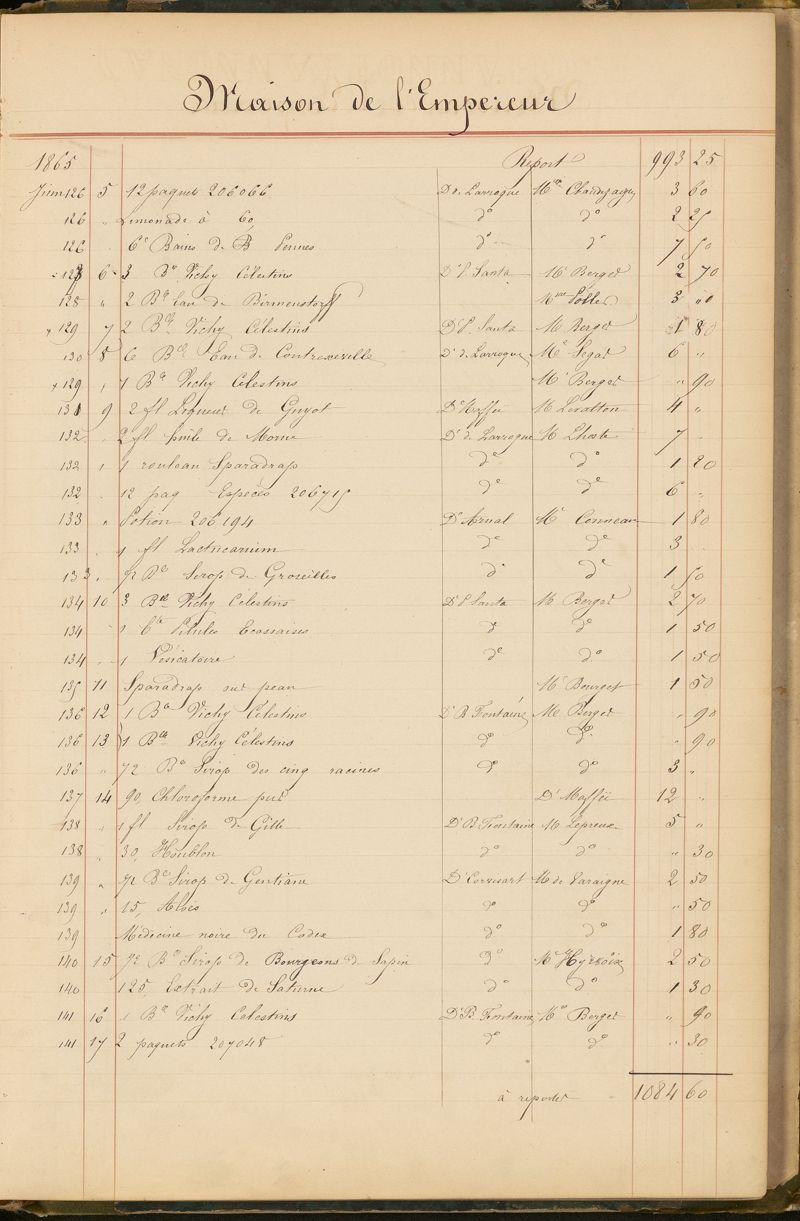 Maison de l'Empereur
1865 Report 993 25
Juin 126 5 12 paquets 206066 Dr de Larroque 3 60
126 " Limonade à 60, do do 2 25
126 6 Bains de Pennes do do 7 50
128 6 3 Bes Vichy Célestins Dr P. Santa Mr Berger 2 70
128 " 2 Bes Eau de Birmenstorff 3 "
129 7 2 Bes Vichy Célestins Dr P. Santa Mr Berger 1 80
130 8 6 Bes Eau de Contrexeville Dr de Larroque Mr Segas 6 "
129 " 1 Be Vichy Célestins Mr Berger " 90
131 9 2 fl Liqueur de Guyot Dr Maffei 4 "
132 2 fl huile de Morue Dr de Larroque Mr Lhoste 7
132 " 1 rouleau Sparadrap do do 1 20
132 12 paq Espèces 206715 do do 6 "
133 " Potion 206194 Dr Arnal Mr Conneau 1 80
133 1 fl Lactucarium do do 3
133 1/2 Be Sirop de Groseilles do do 1 50
134 10 3 Bes Vichy Célestins Dr P. Santa Mr Berger 2 70
134 1 Bte Pilules Ecossaises do do 1 50
134 " 1 Vésicatoire do do 1 50
135 11 Sparadrap sur peau Mr Bourget 1 50
136 12 1 Be Vichy Célestins Dr B. Fontaine Mr Berger " 90
136 13 1 Be Vichy Célestins do do " 90
136 " 1/2 Be Sirop des cinq racines do do 3 "
137 14 90, Chloroforme pur Dr Maffei 12 "
138 " 1 fl Sirop de Gille Dr B. Fontaine Mr Lepreux 5 "
138 " 30, Houblon do do " 30
139 " 1/2 Be Sirop de Gentiane Dr Corvisart Mr de Varaigne 2 50
139 " 15, Aloès do do " 50
139 Médecine noire du Codex do do 1 80
140 15 1/2 Be Sirop de Bourgeons de Sapin do 2 50
140 125, Extrait de Saturne do do 1 30
141 16 1 Be Vichy Célestins Dr B. Fontaine Mr Berger " 90
141 17 2 paquets 207048 do do " 30
à reporter 1084 60